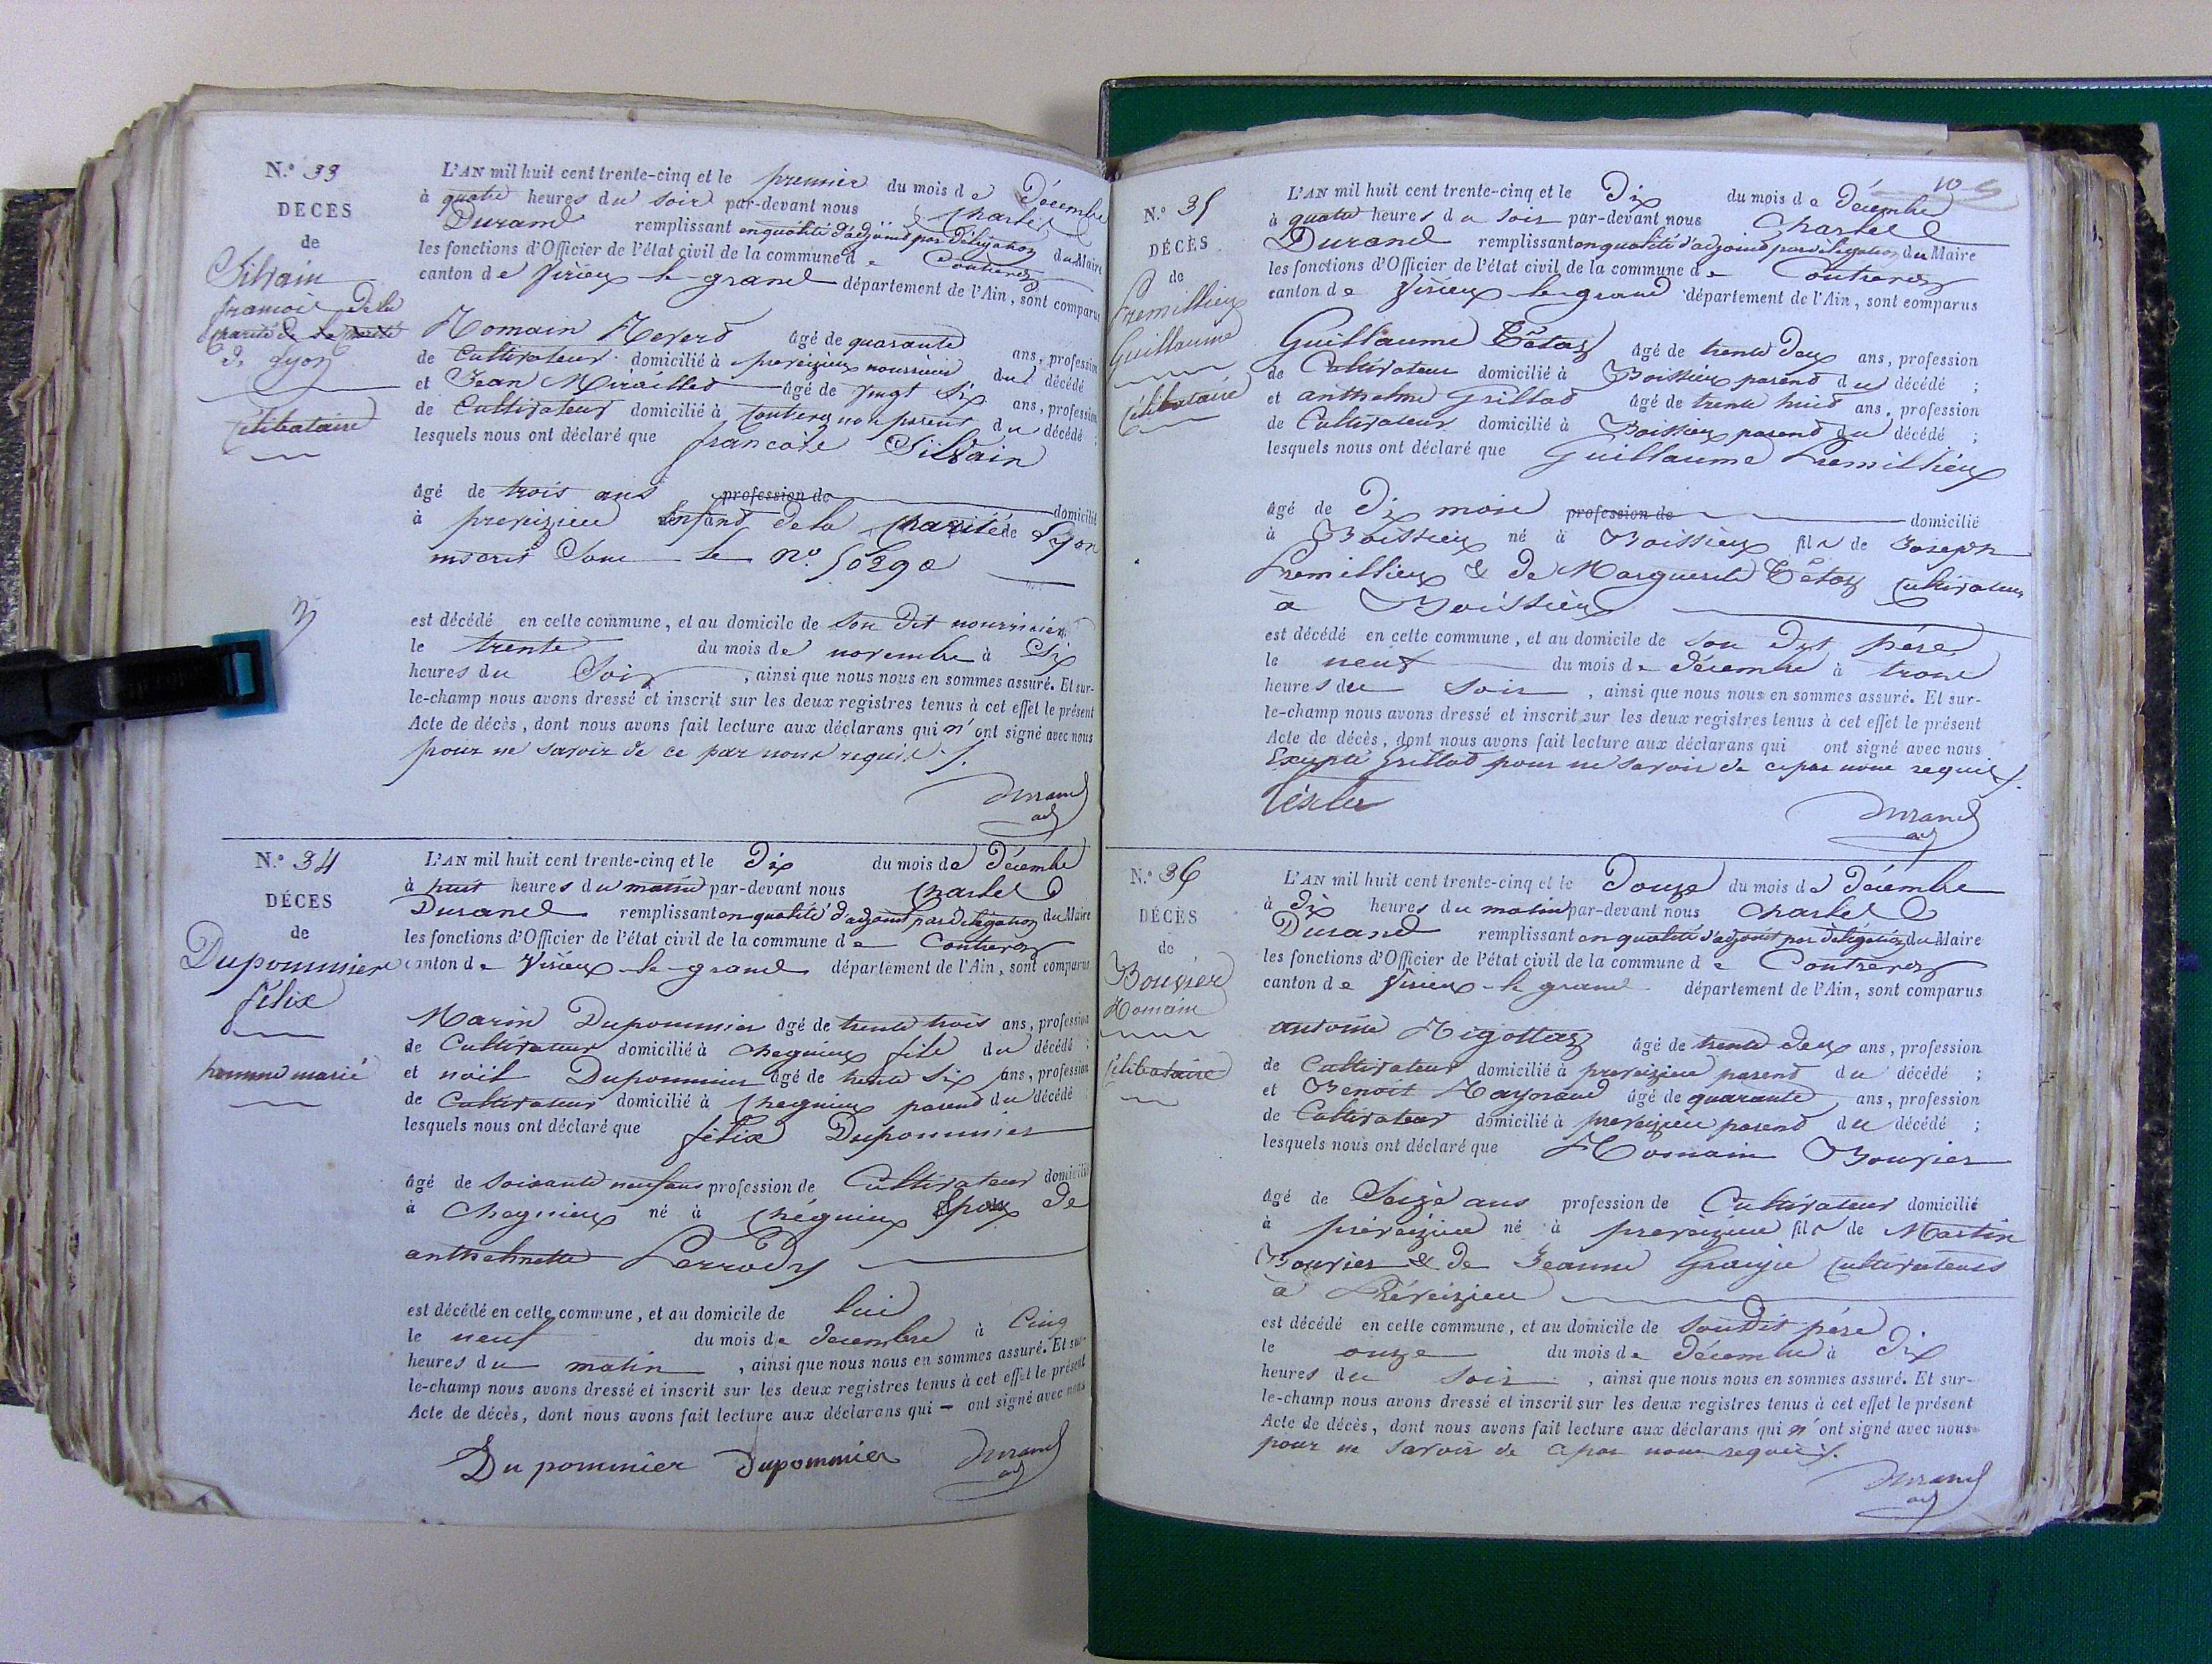 N.° 33
DÉCÈS
de
Silvain
françois De la
charité de la charité
de Lyon
célibataire
L'AN mil huit cent trente-cinq et le premier du mois de Décembre
à quatre heures du soir par-devant nous Charles
Durand remplissant en qualité d'adjoint par délégation du Maire
les fonctions d'Officier de l'état civil de la commune de Contrevoz
canton de Virieux-le-grand département de l'Ain, sont comparus
Romain âgé de quarante ans, profession
de Cultivateur domicilié à preveizieu nourricier du décédé
et Jean âgé de vingt Six ans, profession
de Cultivateur domicilié à Contrevoz non parent du décédé ;
lesquels nous ont déclaré que francois Silvain
âgé de trois ans profession de domicilié
à preveizieu Enfant de la Charité de Lyon
inscrit Sous le N.°
est décédé en cette commune, et au domicile de Son Dit nourricier
le trente du mois de novembre à Six
heures du Soir, ainsi que nous nous en sommes assuré. Et sur-
le-champ nous avons dressé et inscrit sur les deux registres tenus à cet effet le présent
Acte de décès, dont nous avons fait lecture aux déclarans qui n'ont signé avec nous
pour ne savoir de ce par nous requis /.
Durand
adj
N.° 34
DÉCES
de
Dupommier
félix
homme marié
L'AN mil huit cent trente-cinq et le Dix du mois de Décembre
à huit heures du matin par-devant nous Charles
Durand remplissant en qualité d'adjoint par Délégation du Maire
les fonctions d'Officier de l'état civil de la commune de Contrevoz
canton de Virieux-le-grand département de l'Ain, sont comparus
Marin Dupommier âgé de trente trois ans, profession
de Cultivateur domicilié à Chegnieux fils du décédé ;
et noël Dupommier âgé de trente Six ans, profession
de Cultivateur domicilié à Chegnieux parent du décédé ;
lesquels nous ont déclaré que félix Dupommier
âgé de soixante neuf ans profession de Cultivateur domicilié
à Chegnieux né à Chégnieux Epoux de
anthelmette Perrody
est décédé en cette commune, et au domicile de lui
le neuf du mois de decembre à Cinq
heures du matin, ainsi que nous nous en sommes assuré. Et sur-
le-champ nous avons dressé et inscrit sur les deux registres tenus à cet effet le présent
Acte de décès, dont nous avons fait lecture aux déclarans qui — ont signé avec nous
Dupommier Dupommier Durand
adj
N.° 35
DÉCÈS
de
Premillieux
Guillaume
célibataire
L'AN mil huit cent trente-cinq et le Dix du mois de Décembre
à quatre heures du soir par-devant nous Charles
Durand remplissant en qualité d'adjoint par délégation du Maire
les fonctions d'Officier de l'état civil de la commune de Contrevoz
canton de Virieux-le-grand département de l'Ain, sont comparus
Guillaume Tétaz âgé de trente deux ans, profession
de Cultivateur domicilié à Boissieux parent du décédé ;
et anthelme Grillod âgé de trente huit ans, profession
de Cultivateur domicilié à Boissieux parent du décédé ;
lesquels nous ont déclaré que Guillaume Premillieux
âgé de Dix mois profession de domicilié
à Boissieux né à Boissieux fils de Joseph
Premillieux & de Marguerite Tétaz Cultivateurs
à Boissieux
est décédé en cette commune, et au domicile de son Dit père
le neuf du mois de décembre à trois
heures du soir, ainsi que nous nous en sommes assuré. Et sur-
le-champ nous avons dressé et inscrit sur les deux registres tenus à cet effet le présent
Acte de décès, dont nous avons fait lecture aux déclarans qui ont signé avec nous
Excepté Grillod pour ne savoir de ce par nous requis /.
Durand
adj
N.° 36
DÉCÈS
de
Bouvier
Romain
célibataire
L'AN mil huit cent trente-cinq et le Douze du mois de Décembre
à dix heures du matin par-devant nous Charles
Durand remplissant en qualité d'adjoint par délégation du Maire
les fonctions d'Officier de l'état civil de la commune de Contrevoz
canton de Virieux-le-grand département de l'Ain, sont comparus
antoine Rigottaz âgé de trente deux ans, profession
de Cultivateur domicilié à preveizieu parent du décédé ;
et Benoit Raynaud âgé de quarante ans, profession
de Cultivateur domicilié à preveizieu parent du décédé ;
lesquels nous ont déclaré que Romain Bouvier
âgé de Seize ans profession de Cultivateur domicilié
à préveizieu né à preveizieu fils de Martin
Bouvier & de Jeanne Cultivateurs
à Préveizieu
est décédé en cette commune, et au domicile de son Dit père
le onze du mois de décembre à Dix
heures du soir, ainsi que nous nous en sommes assuré. Et sur-
le-champ nous avons dressé et inscrit sur les deux registres tenus à cet effet le présent
Acte de décès, dont nous avons fait lecture aux déclarans qui n'ont signé avec nous
pour ne savoir de ce par nous requis /.
Durand
adj